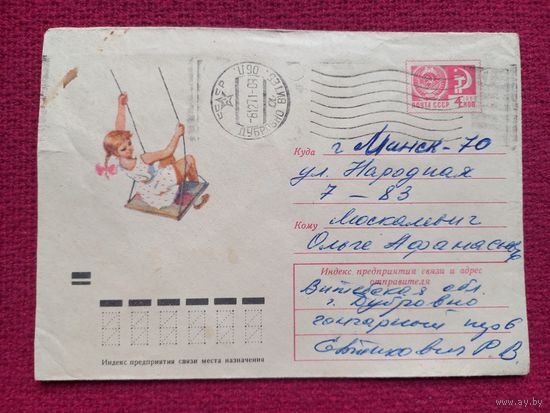 ПОЧТА СССР 4 КОП
ДУБРОВНО ВИТЕБ. ОБЛ.
БССР
-6127
Куда г Минск-70
ул. Народная
7 - 83
Кому Москалевич
Ольге Афанасьевне
Индекс предприятия связи и адрес отправителя
Витебская обл.
г. Дубровно
гончарный пер 6
Р. В.
Индекс предприятия связи места назначения
www.ay.by